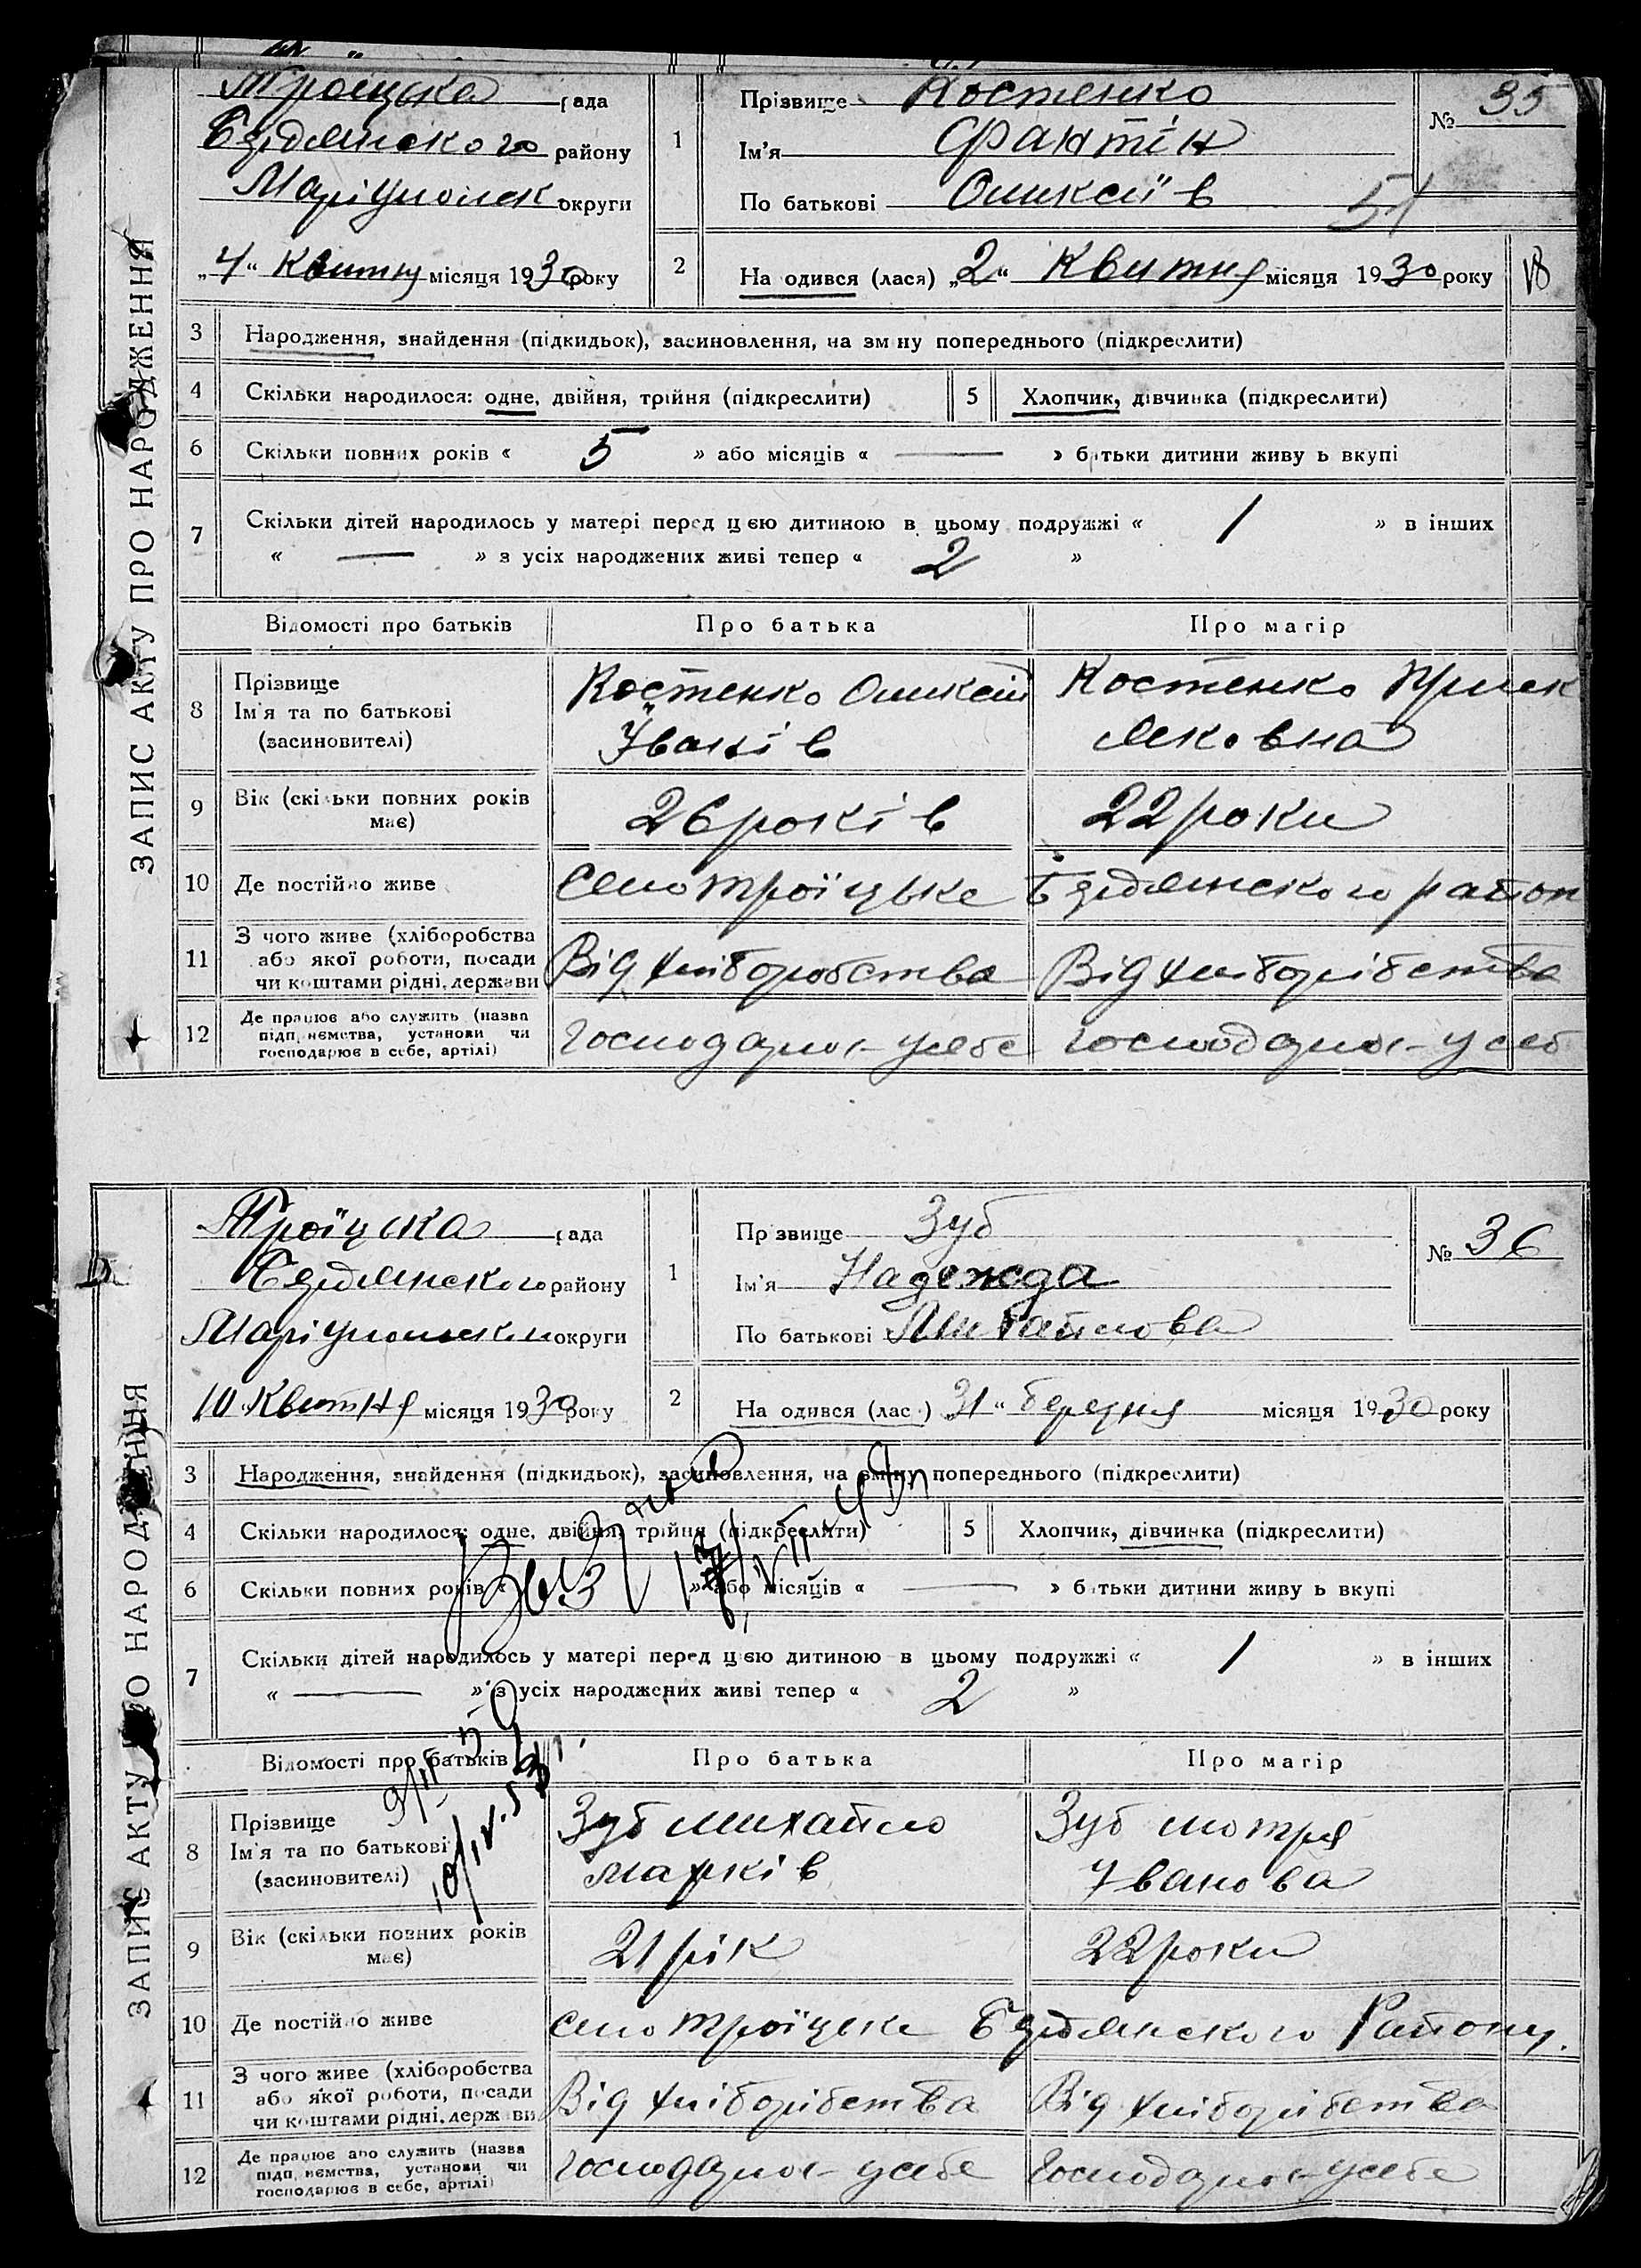 ЗАПИС АКТУ ПРО НАРОДЖЕННЯ
Троіцька рада
Бердянского району
Маріупольск округи
„4“ Квитня місяця 1930 року
1
Прізвище Костенко
Ім'я Фантін
По батькові Оликсіїв
№ 35
51
2
На одився (лася) „2“ Квитня місяця 1930 року
3 Народження, знайдення (підкидьок), засиновлення, на зм ну попереднього (підкреслити)
4 Скільки народилося: одне, двійня, трійня (підкреслити)
5 Хлопчик, дівчинка (підкреслити)
6 Скільки повних років « 5 » або місяців « — » батьки дитини живу ь вкупі
7 Скільки дітей народилось у матері перед цією дитиною в цьому подружжі « 1 » в інших
« — » з усіх народжених живі тепер « 2 »
Відомості про батьків Про батька Про матір
8 Прізвище
Ім'я та по батькові
(засиновителі)
Костенко Оликсій
Іванів
Костенко
Яковна
9 Вік (скільки повних років
має)
26 років 22 роки
10 Де постійно живе Село Троїцьке Бердянского район
11 З чого живе (хліборобства
або якої роботи, посади
чи коштами рідні, держави
Від хліборобства Від хліборібства
12 Де працює або служить (назва
підп. немства, установи чи
господарює в себе, артілі)
Господарює усебе господарює усеб
ЗАПИС АКТУ ПРО НАРОДЖЕННЯ
Троїцька рада
Бердянского району
округи
10 Квитня місяця 1930 року
1
Пр звище Зуб
Ім'я Надежда
По батькові Михайлова
№ 36
2
На одився (лас ) „31“ березня місяця 1930 року
3 Народження, знайдення (підкидьок), засиновлення, на зміну попереднього (підкреслити)
4 Скільки народилося: одне, двійня, трійня (підкреслити)
5 Хлопчик, дівчинка (підкреслити)
6 Скільки повних років « » або місяців « — » батьки дитини живу ь вкупі
7 Скільки дітей народилось у матері перед цією дитиною в цьому подружжі « 1 » в інших
« — » з усіх народжених живі тепер « 2 »
Відомості про батьків Про батька Про матір
8 Прізвище
Ім'я та по батькові
(засиновителі)
Зуб Михайло
Марків
Зуб Мотря
Іванова
9 Вік (скільки повних років
має)
21 рік 22 роки
10 Де постійно живе село Троїцьке Бердянского Району.
11 З чого живе (хліборобства
або якої роботи, посади
чи коштами рідні, держави
Від хліборібства Від хліборібства
12 Де працює або служить (назва
підп немства, установи чи
господарює в себе, артілі)
Господарює усебе Господарює усебе